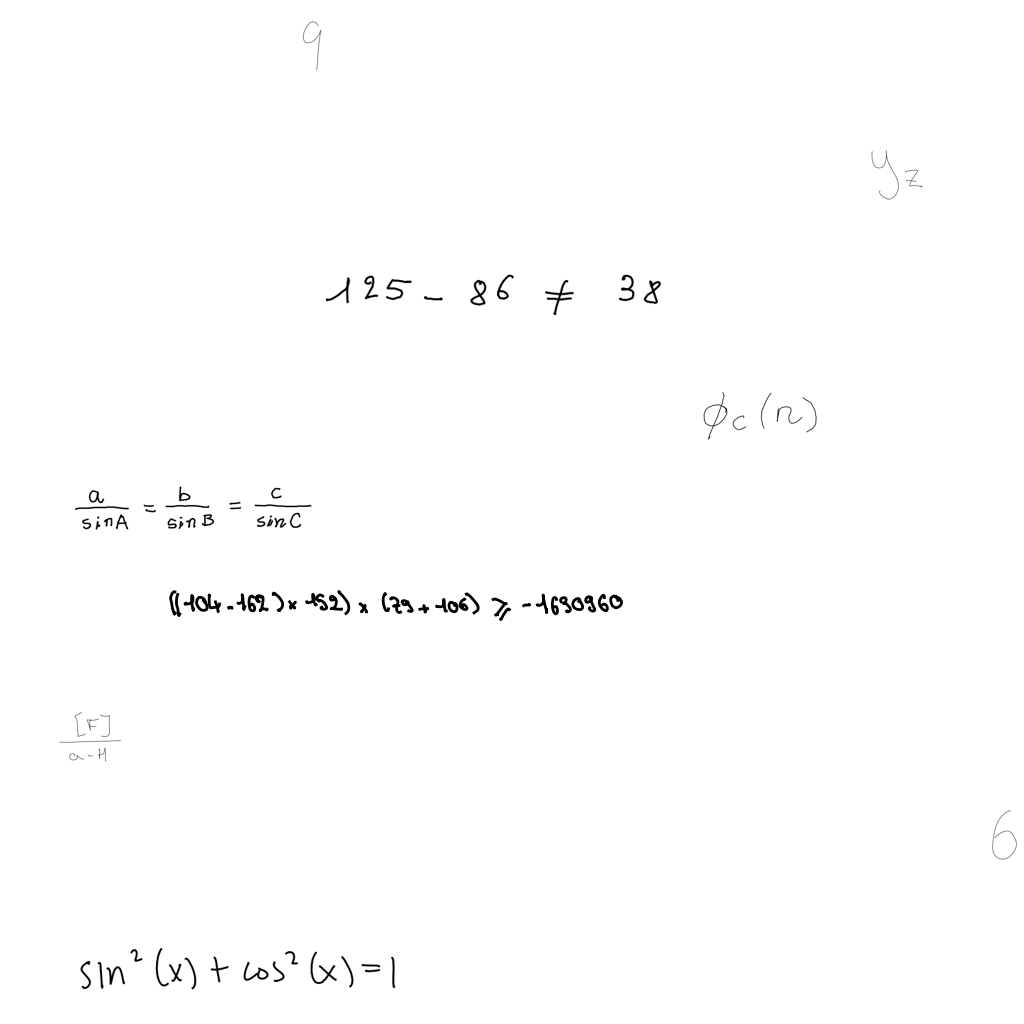 9
y_z
125 - 86 ≠ 38
ϕ_c(n)
a/sinA = b/sinB = c/sinC
((104-162)×152)×(79+106) ⩾ -1630960
[F]/a-H
6
sin²(x)+cos²(x)=1